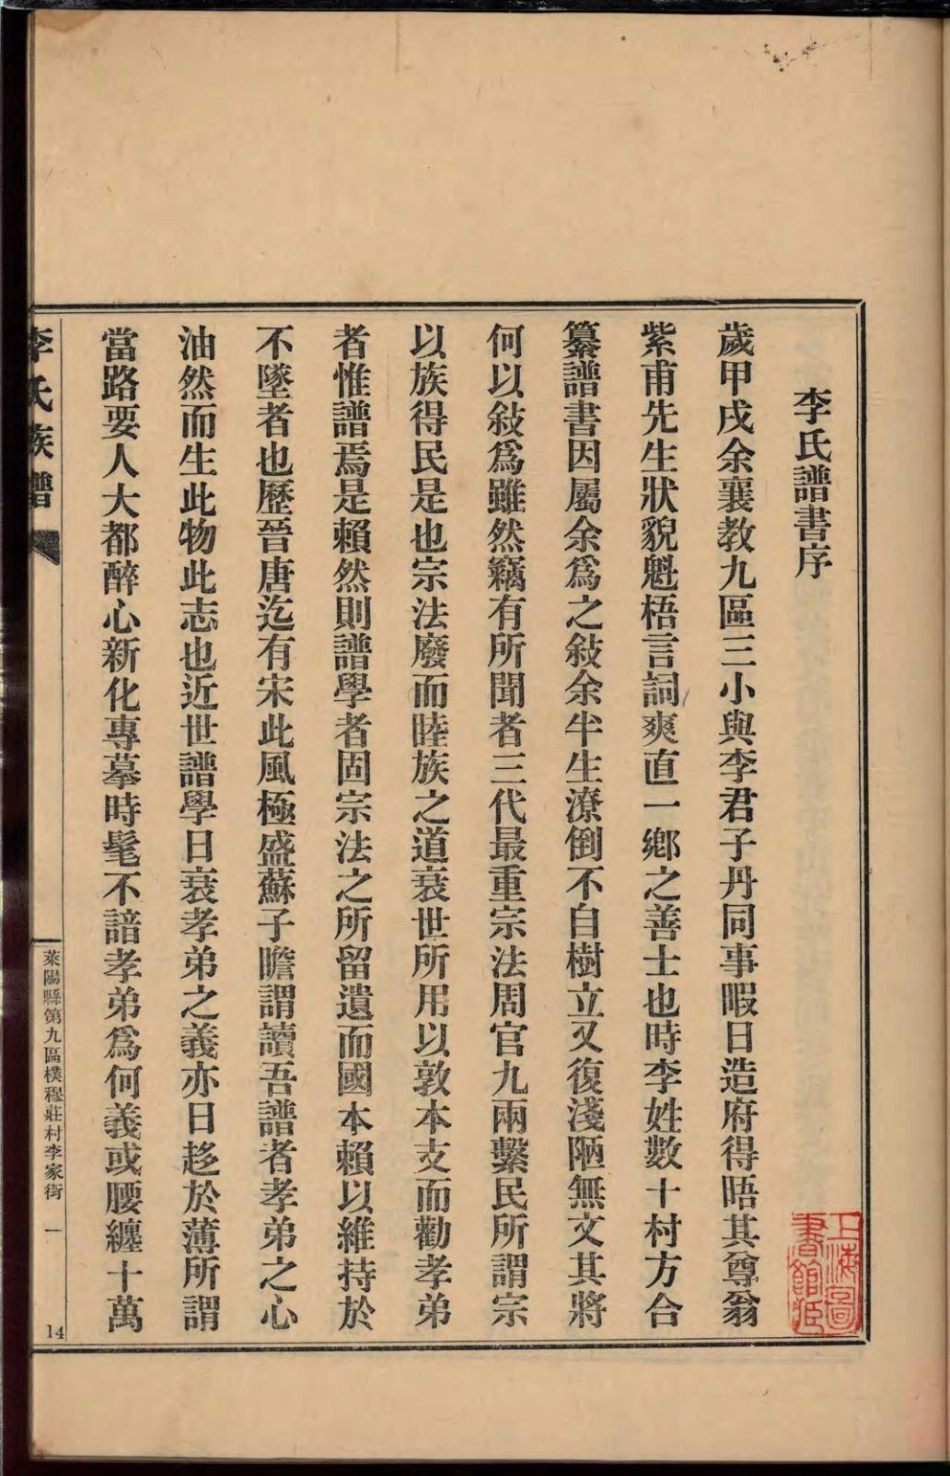 李氏譜書序
歲甲戌余襄教九區三小與李君子丹同事暇日造府得晤其尊翁
紫甫先生狀貌魁梧言詞爽直一鄉之善士也時李姓數十村方合
纂譜書因屬余爲之敍余半生潦倒不自樹立又復淺陋無文其將
何以敍爲雖然竊有所聞者三代最重宗法周官九兩繫民所謂宗
以族得民是也宗法廢而睦族之道衰世所用以敦本支而勸孝弟
者惟譜焉是賴然則譜學者固宗法之所留遺而國本賴以維持於
不墜者也歷晉唐迄有宋此風極盛蘇子瞻謂讀吾譜者孝弟之心
油然而生此物此志也近世譜學日衰孝弟之義亦日趍於薄所謂
當路要人大都醉心新化專摹時髦不諳孝弟爲何義或腰纏十萬
李氏族譜
萊陽縣第九區樸穆莊村李家街 一
14
上海圖書館藏